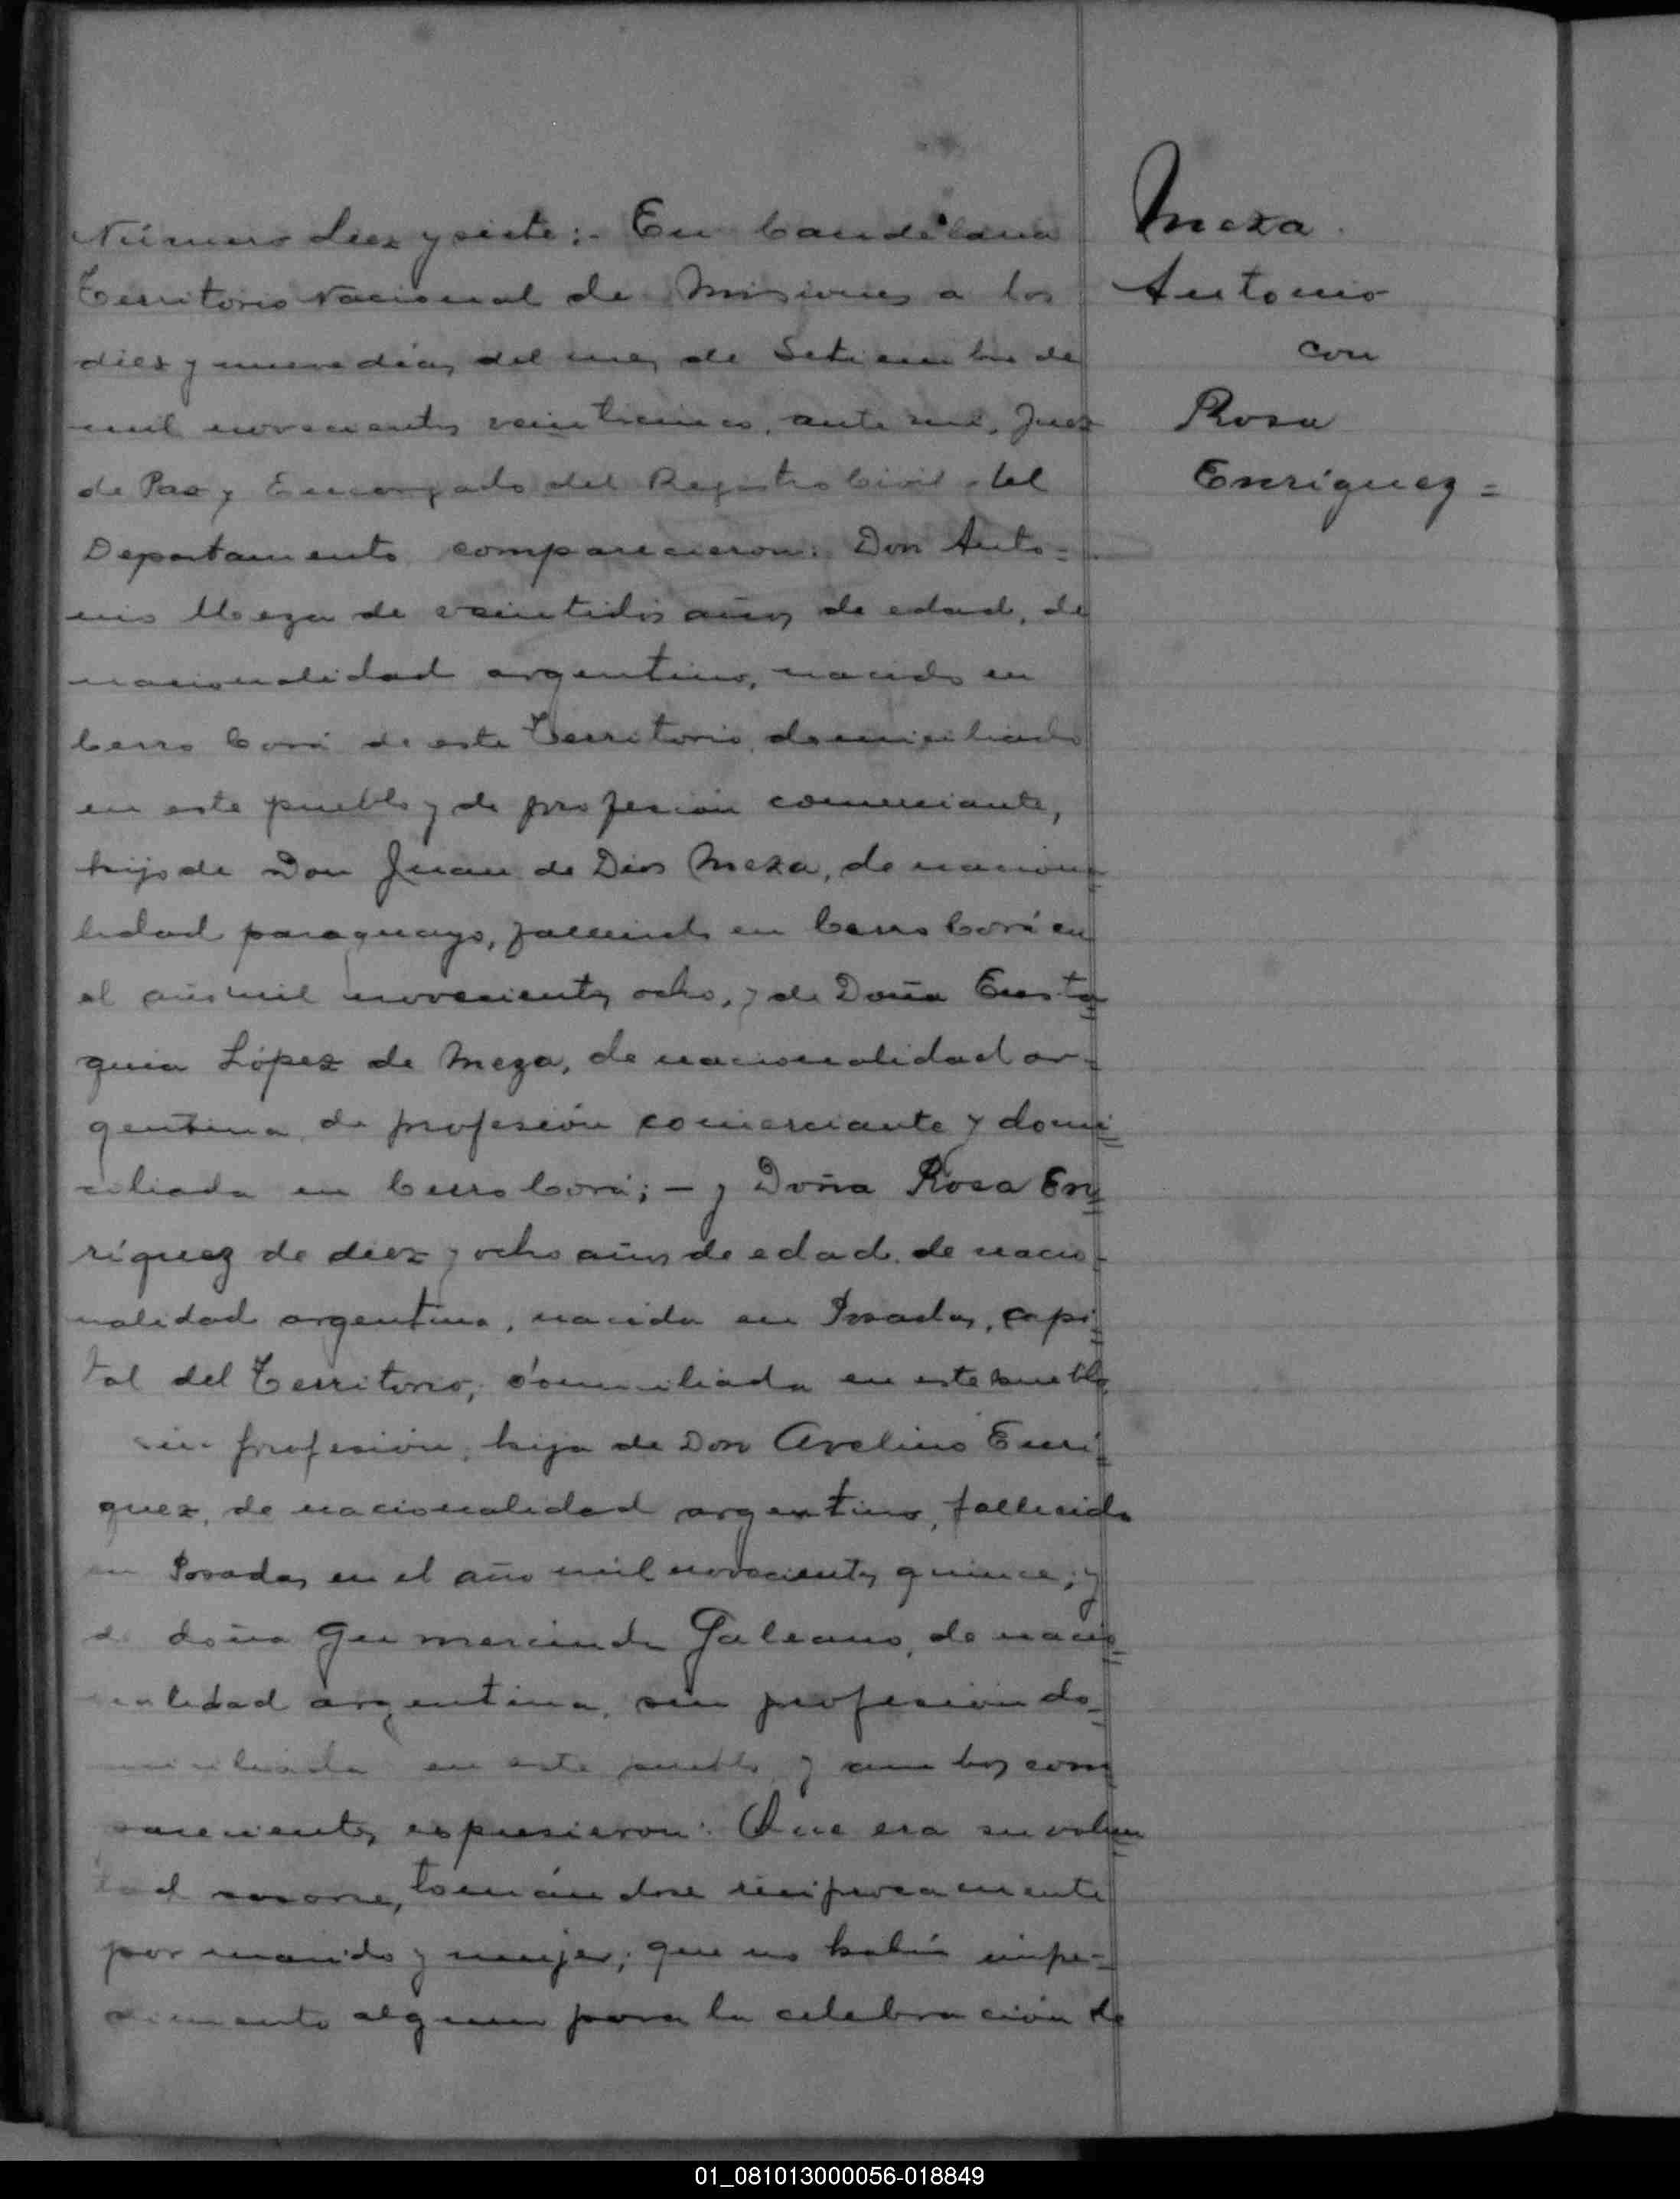 Número diez y siete:- En Candelaria
Territorio Nacional de Misiones a los
diez y nueve días del mes de Setiembre de
mil novecientos veinticinco, ante mí, Juez
de Paz y Encargado del Registro Civil del
Departamento comparecieron: Don Anto=
nio Meza de veintidós años de edad, de
nacionalidad argentino, nacido en
Cerro Corá de este Territorio, domiciliado
en este pueblo y de profesión comerciante,
hijo de Don Juan de Dios Meza, de naciona=
lidad paraguayo, fallecido en Cerro Corá en
el año mil novecientos ocho, y de Doña Eusta=
quia López de Meza, de nacionalidad ar=
gentina, de profesión comerciante y domi=
ciliada en Cerro Corá; - y Doña Rosa En=
ríquez de diez y ocho años de edad, de nacio=
nalidad argentina, nacida en Posadas, capi=
tal del Territorio, domiciliada en este pueblo,
sin profesión, hija de Don Avelino Enrí=
quez, de nacionalidad argentino, fallecido
en Posadas en el año mil novecientos quince, y
de doña Gumercinda Galeano, de nacio=
nalidad argentina, sin profesión do=
miciliada en este pueblo, y ambos com
parecientes expresieron: Que era su volun
tad casarse, tomándose recíprocamente
por marido y mujer; que no había impe=
dimento alguno para la celebración de
Meza
Antonio
con
Rosa
Enríquez =
01_081013000056-018849